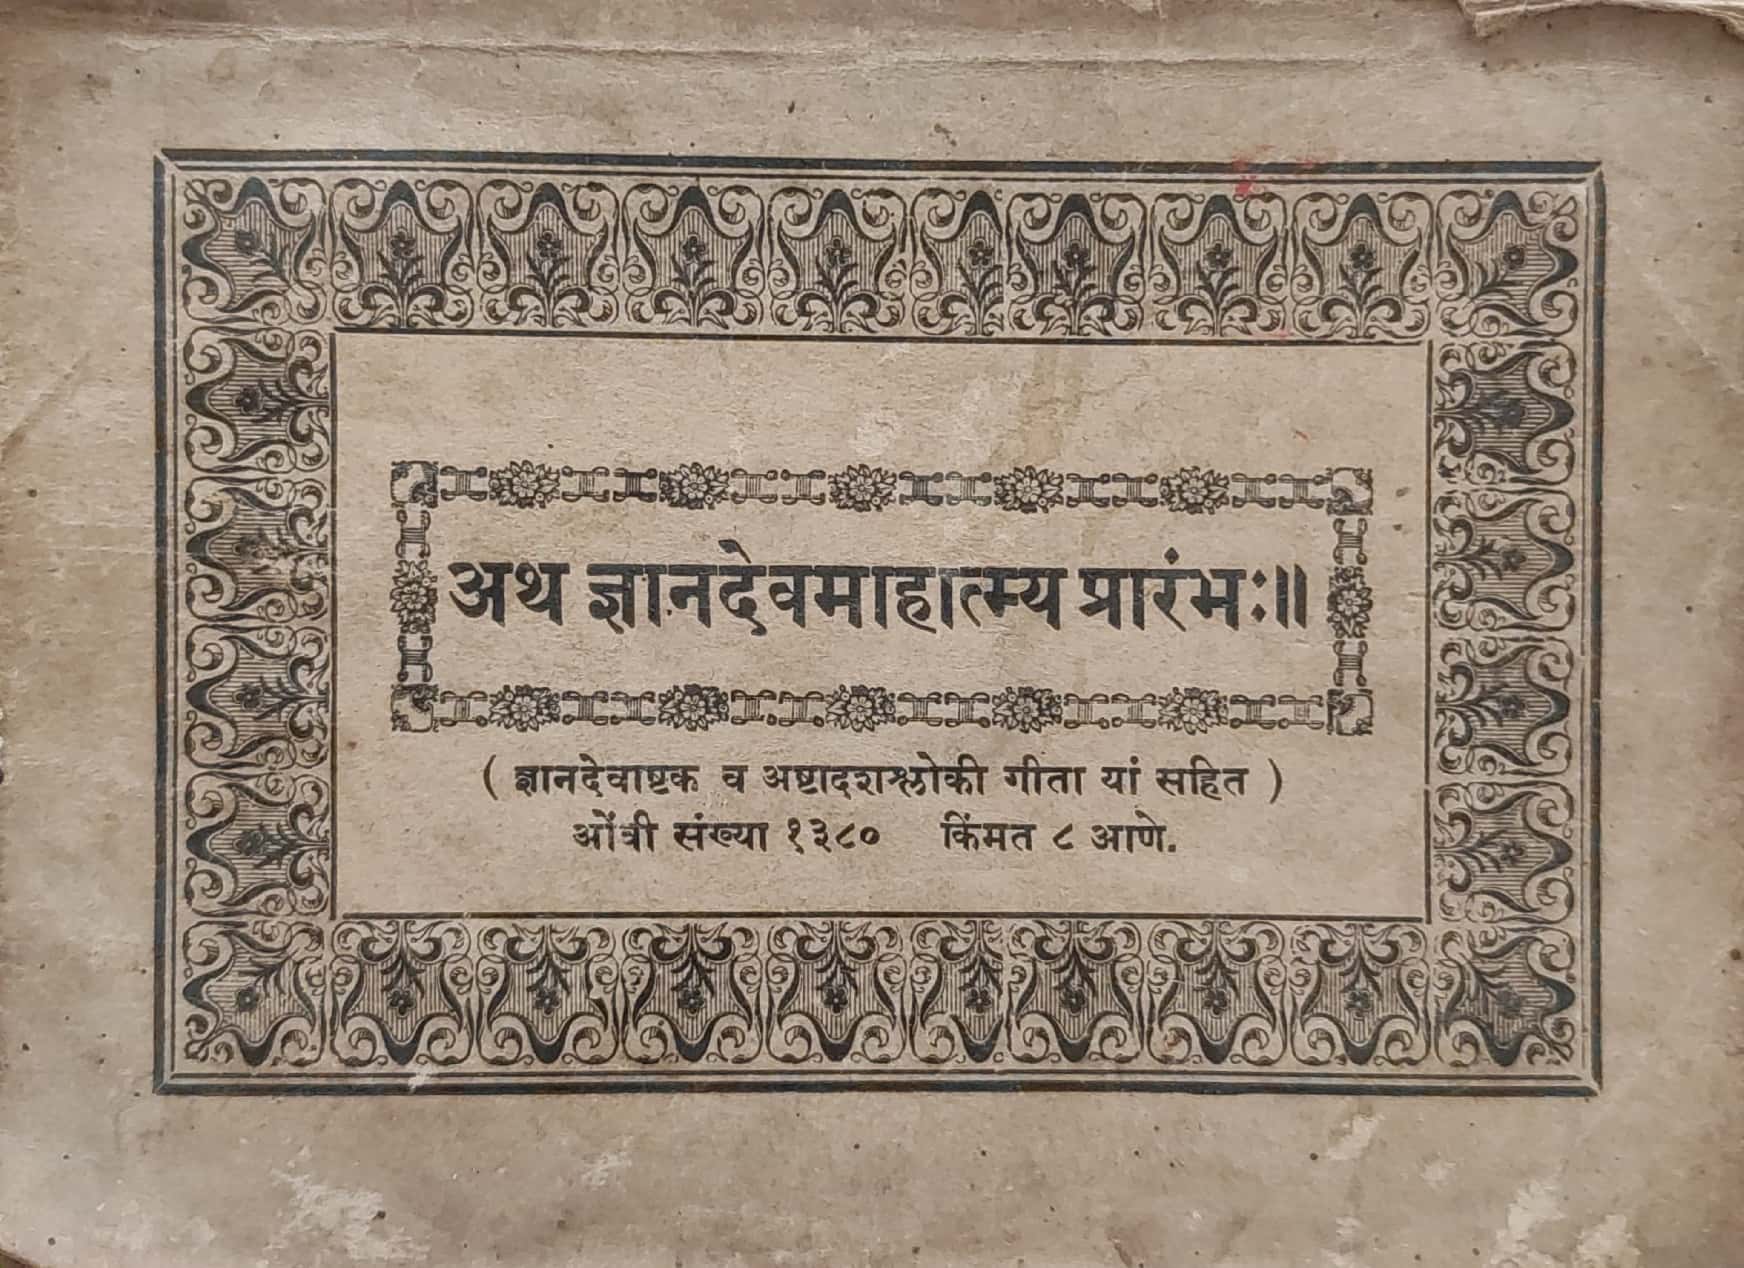 अथ ज्ञानदेवमाहात्म्य प्रारंभः॥
( ज्ञानदेवाष्टक व अष्टादशश्लोकी गीता यां सहित )
ओंवी संख्या १३८० किंमत ८ आणे.